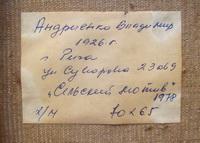 Андриенко Владимир
1926 г.
г. Рига
ул Суворова 23 кв 9
„Сельский мотив"
1978
х/м 70х65